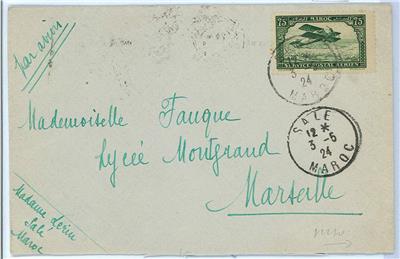 par avion
75 MAROC 75
SERVICE POSTAL AÉRIEN
12 *
3 -6
24
MAROC
SALE
12 *
3 -6
24
MAROC
Mademoiselle Fauque
Lycée Montgrand
Marseille
Madame
Salé
Maroc